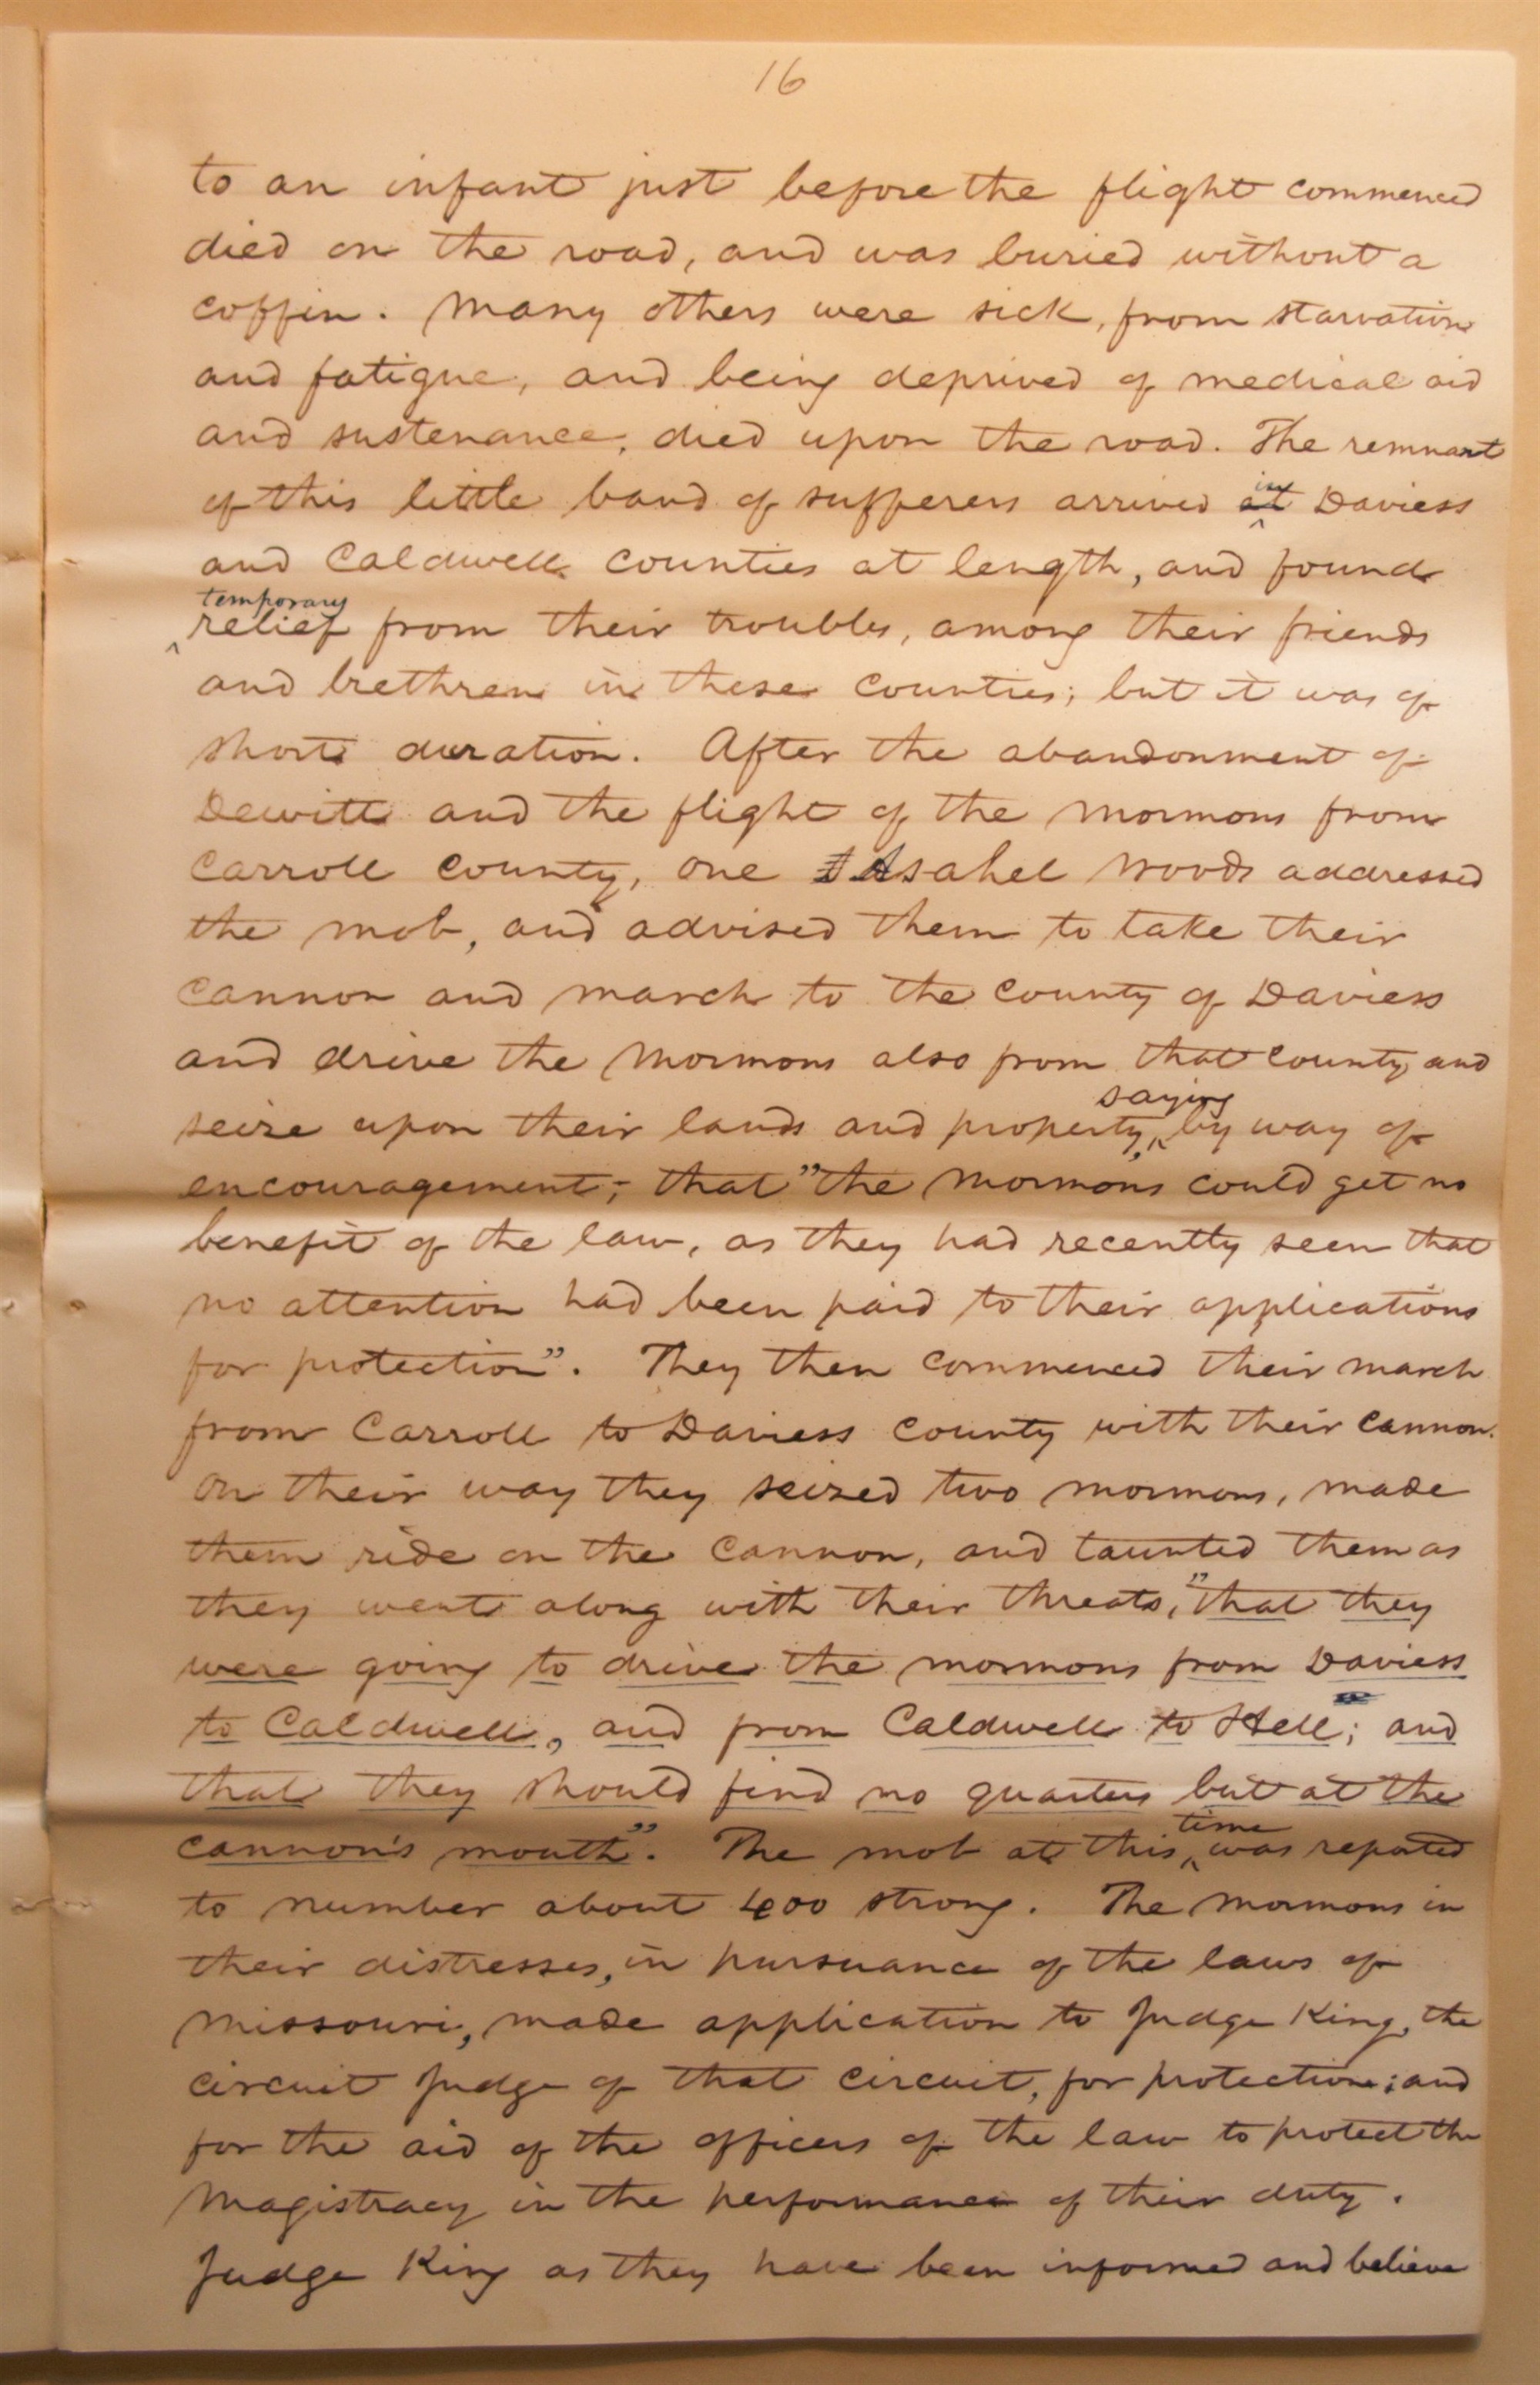 16
to an infant just before the flight commenced
died on the road, and was buried without a
coffin. Many others were sick, from starvation
and fatigue, and being deprived of medical aid
and sustenance, died upon the road. The remnant
of this little band of sufferers arrived in Daviess
and Caldwell counties at length, and found
temporary
relief from their troubles, among their friends
and brethren in these counties; but it was of
short duration. After the abandonment of
Dewitt and the flight of the Mormons from
Carroll county, one Asahel Woods addressed
the mob, and advised them to take their
cannon and march to the county of Daviess
and drive the Mormons also from that county, and
saying
seize upon their lands and property, by way of
encouragement; that "the Mormons could get no
benefit of the law, as they had recently seen that
no attention had been paid to their applications
for protection". They then commenced their march
from Carroll to Daviess county with their cannon.
On their way they seized two mormons, made
them ride on the cannon, and taunted them as
they went along with their threats, "that they
were going to drive the mormons from Daviess
to Caldwell, and from Caldwell to Hell; and
that they should find no quarters but at the
cannon's mouth". The mob at this time was reported
to number about 400 strong. The Mormons in
their distresses, in pursuance of the laws of
Missouri, made application to Judge King, the
circuit Judge of that circuit, for protection; and
for the aid of the officers of the law to protect the
Magistracy in the performance of their duty.
Judge King as they have been informed and believe